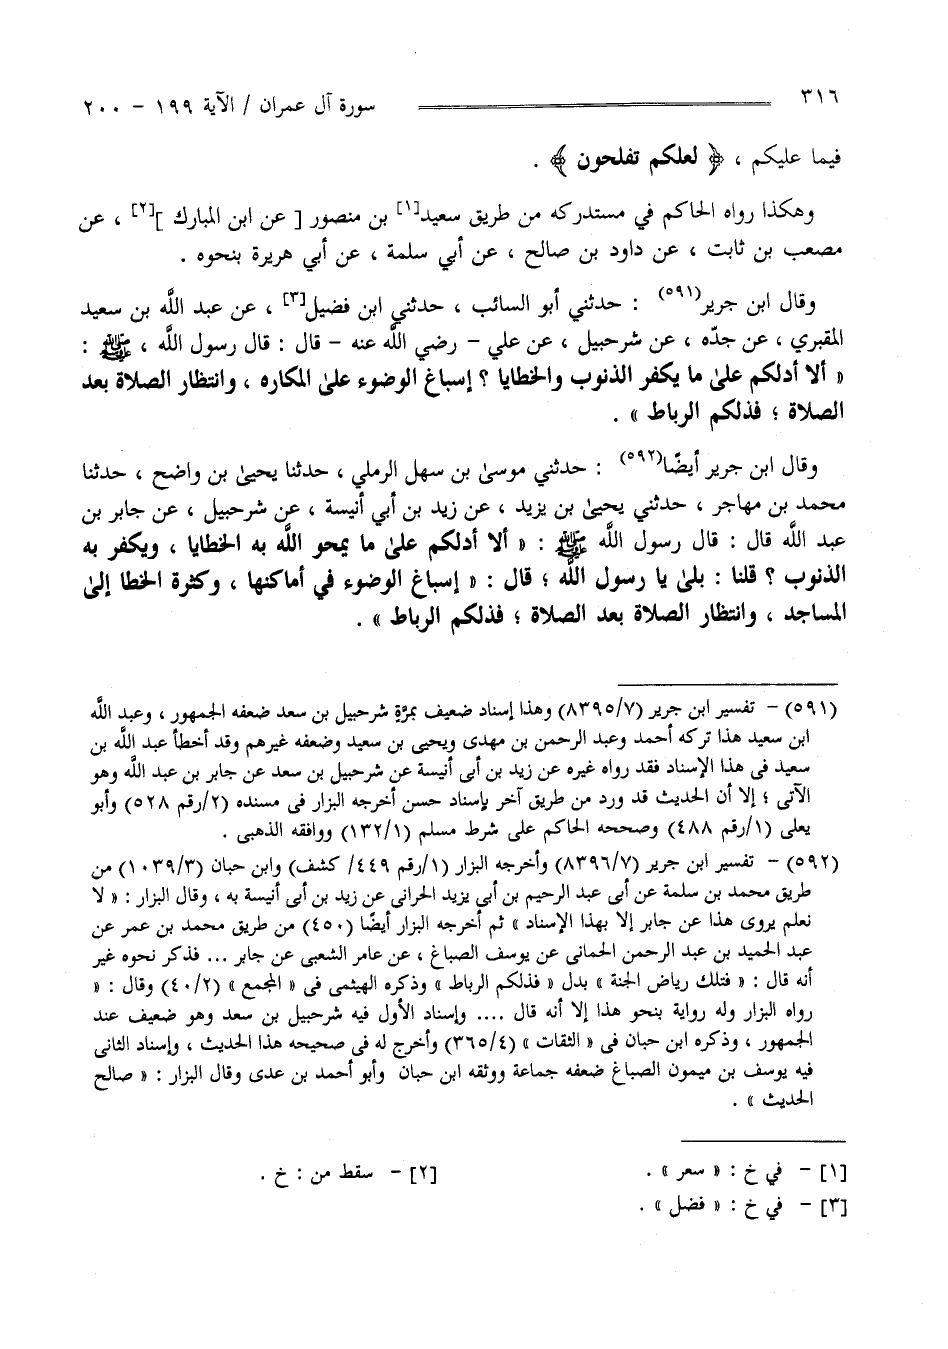 ٣١٦ سورة آل عمران / الآية ١٩٩ - ٢٠٠
فيما عليكم ، ﴿ لعلكم تفلحون ﴾ .
وهكذا رواه الحاكم في مستدركه من طريق سعيد[١] بن منصور [ عن ابن المبارك ][٢] ، عن
مصعب بن ثابت ، عن داود بن صالح ، عن أبي سلمة ، عن أبي هريرة بنحوه .
وقال ابن جرير(٥٩١) : حدثني أبو السائب ، حدثني ابن فضيل[٣] ، عن عبد اللَّه بن سعيد
المقبري ، عن جدّه ، عن شرحبيل ، عن علي - رضي اللَّه عنه - قال : قال رسول اللَّه ، ﷺ :
« ألا أدلكم علىٰ ما يكفر الذنوب والخطايا ؟ إسباغ الوضوء علىٰ المكاره ، وانتظار الصلاة بعد
الصلاة ؛ فذلكم الرباط » .
وقال ابن جرير أيضًا(٥٩٢) : حدثني موسىٰ بن سهل الرملي ، حدثنا يحيىٰ بن واضح ، حدثنا
محمد بن مهاجر ، حدثني يحيىٰ بن يزيد ، عن زيد بن أبي أنيسة ، عن شرحبيل ، عن جابر بن
عبد اللَّه قال : قال رسول اللَّه ﷺ : « ألا أدلكم علىٰ ما يمحو اللَّه به الخطايا ، ويكفر به
الذنوب ؟ قلنا : بلىٰ يا رسول اللَّه ؛ قال : « إسباغ الوضوء في أماكنها ، وكثرة الخطا إلىٰ
المساجد ، وانتظار الصلاة بعد الصلاة ؛ فذلكم الرباط » .
(٥٩١) - تفسير ابن جرير (٨٣٩٥/٧) وهذا إسناد ضعيف بمرّةٍ شرحبيل بن سعد ضعفه الجمهور ، وعبد اللَّه
ابن سعيد هذا تركه أحمد وعبد الرحمن بن مهدى ويحيى بن سعيد وضعفه غيرهم وقد أخطأ عبد اللَّه بن
سعيد فى هذا الإسناد فقد رواه غيره عن زيد بن أبى أنيسة عن شرحبيل بن سعد عن جابر بن عبد اللَّه وهو
الآتى ؛ إلا أن الحديث قد ورد من طريق آخر بإسناد حسن أخرجه البزار فى مسنده (٢/رقم ٥٢٨) وأبو
يعلى (١/رقم ٤٨٨) وصححه الحاكم على شرط مسلم (١٣٢/١) ووافقه الذهبى .
(٥٩٢) - تفسير ابن جرير (٨٣٩٦/٧) وأخرجه البزار (١/رقم ٤٤٩/ كشف) وابن حبان (١٠٣٩/٣) من
طريق محمد بن سلمة عن أبى عبد الرحيم بن أبى يزيد الحرانى عن زيد بن أبى أنيسة به ، وقال البزار : « لا
نعلم يروى هذا عن جابر إلا بهذا الإسناد » ثم أخرجه البزار أيضًا (٤٥٠) من طريق محمد بن عمر عن
عبد الحميد بن عبد الرحمن الحمانى عن يوسف الصباغ ، عن عامر الشعبى عن جابر ... فذكر نحوه غير
أنه قال : « فتلك رياض الجنة » بدل « فذلكم الرباط » وذكره الهيثمى فى « المجمع » (٤٠/٢) وقال : «
رواه البزار وله رواية بنحو هذا إلا أنه قال .... وإسناد الأول فيه شرحبيل بن سعد وهو ضعيف عند
الجمهور ، وذكره ابن حبان فى « الثقات » (٣٦٥/٤) وأخرج له فى صحيحه هذا الحديث ، وإسناد الثانى
فيه يوسف بن ميمون الصباغ ضعفه جماعة ووثقه ابن حبان وأبو أحمد بن عدى وقال البزار : « صالح
الحديث » .
[١] - في خ : « سعر » . [٢] - سقط من : خ .
[٣] - في خ : « فضل » .